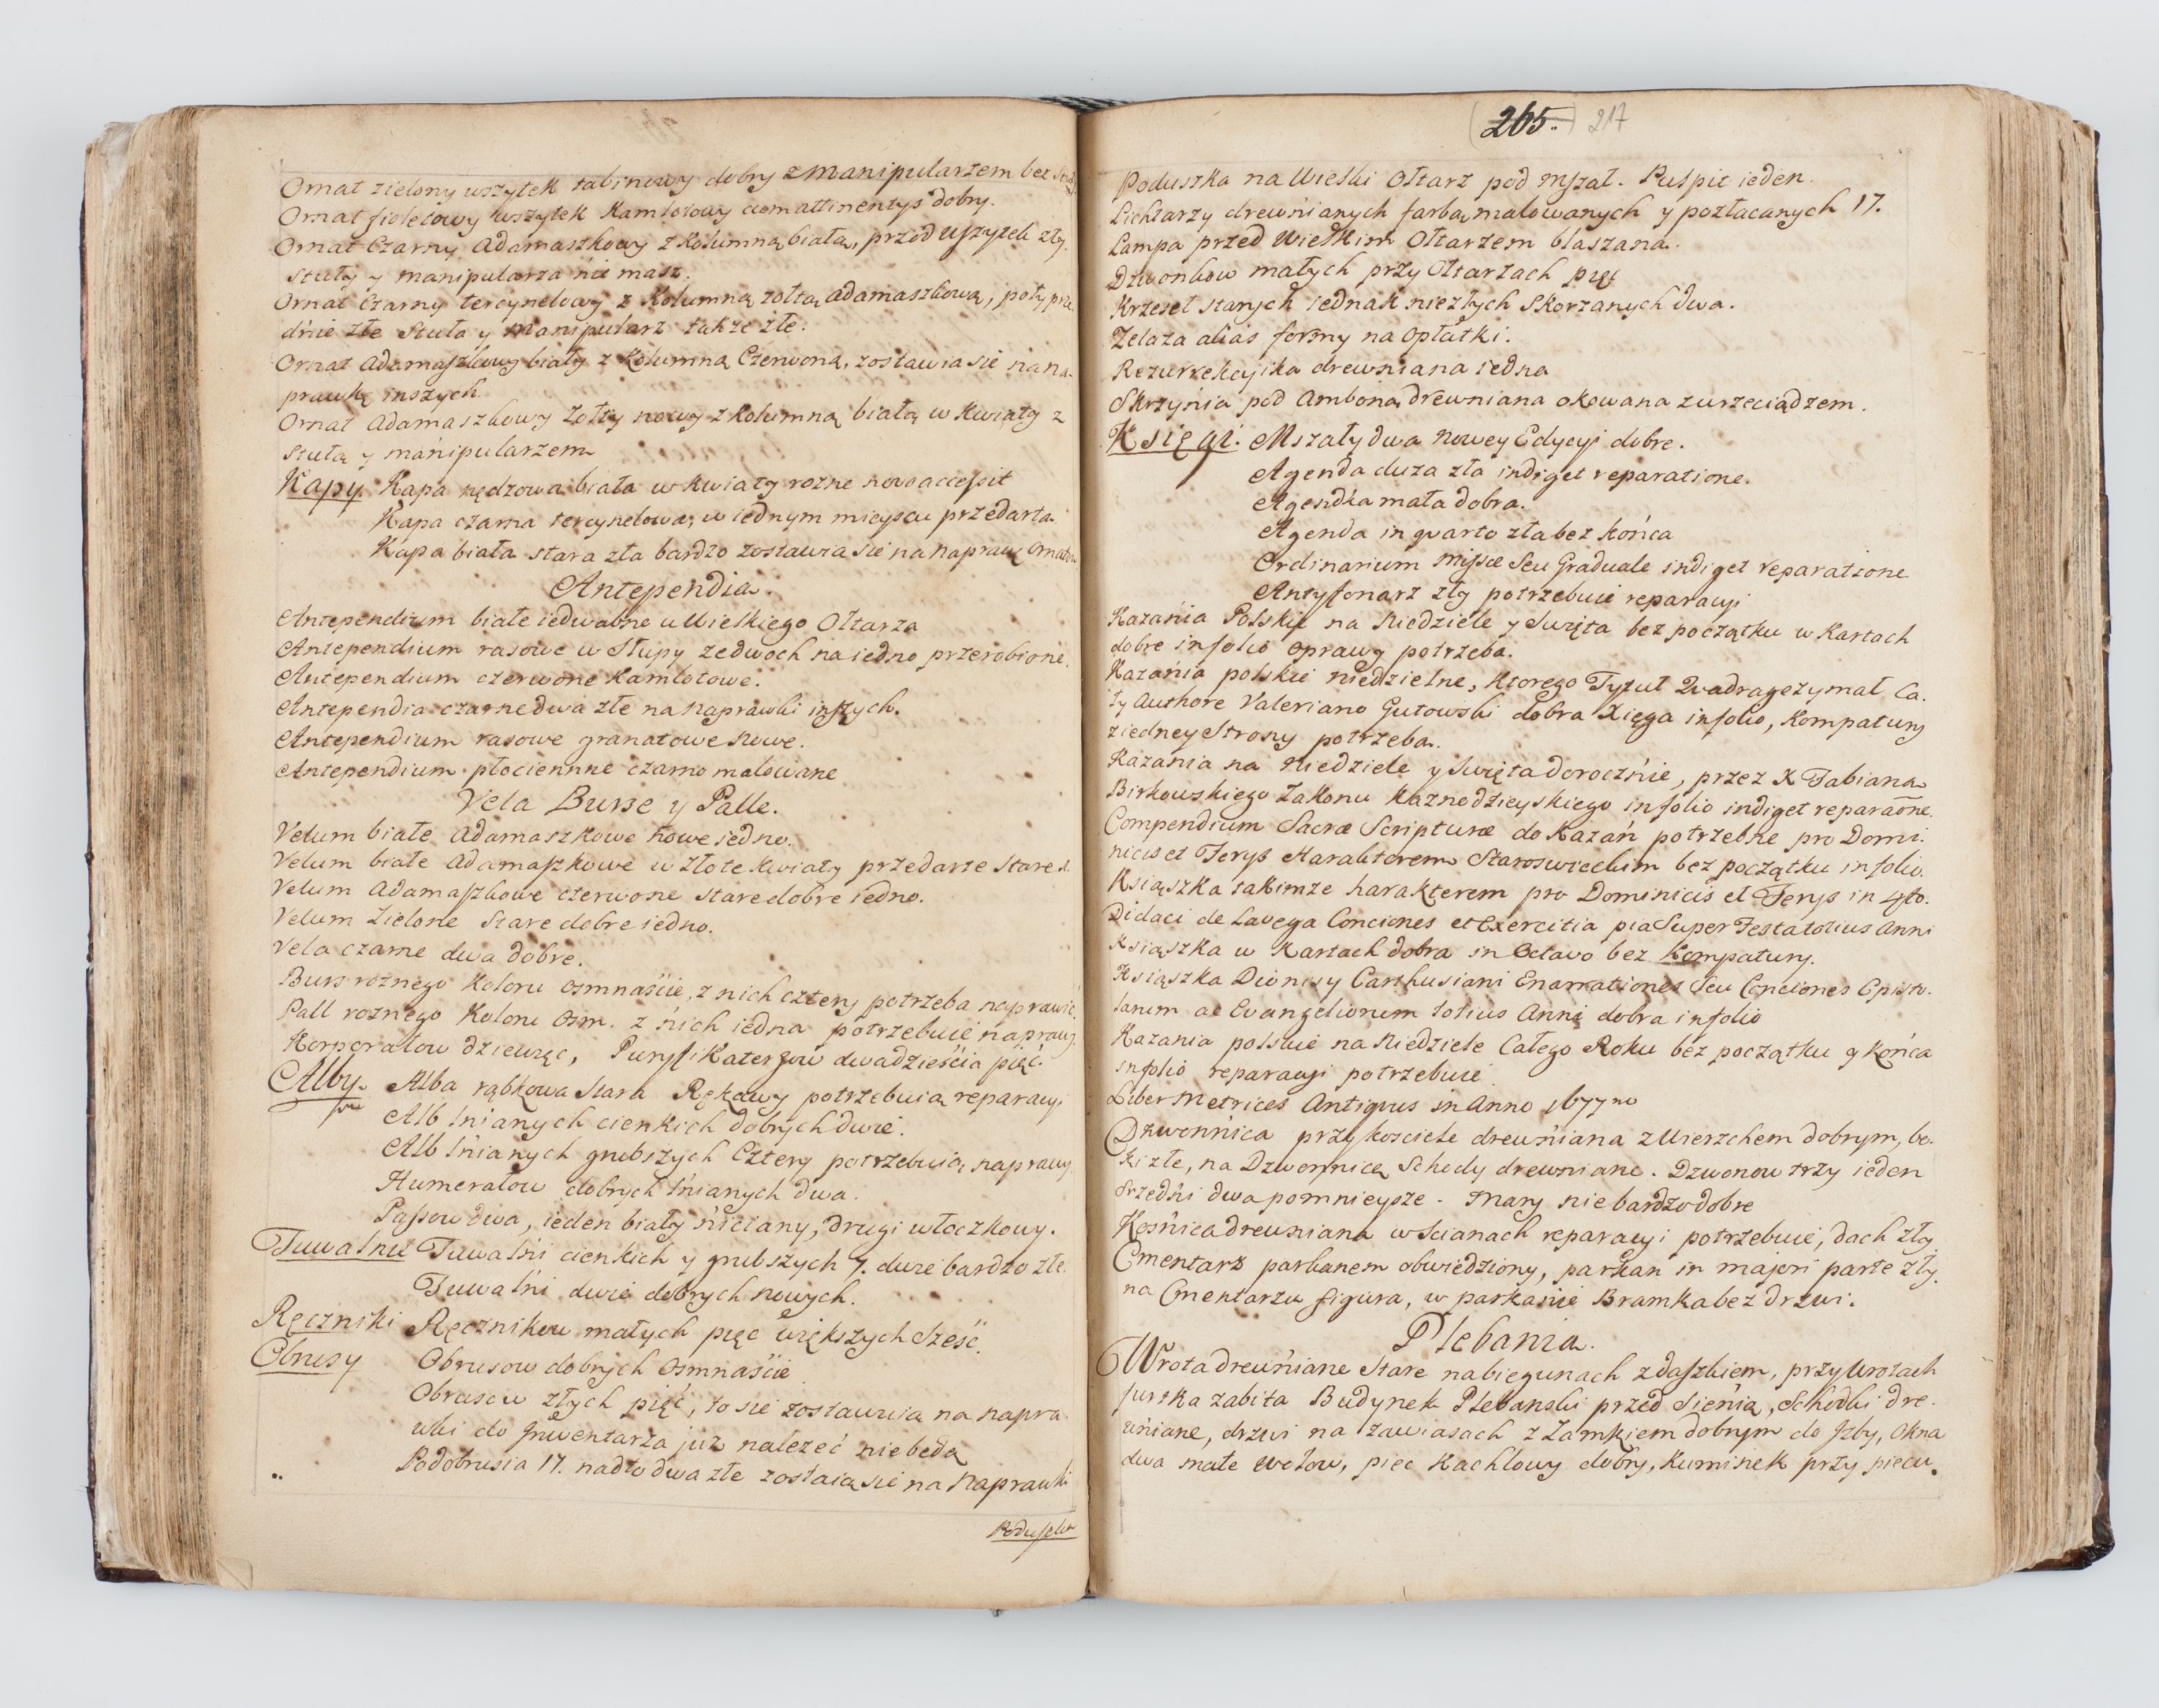 Ornat zielony wszytek tabinowy dobry z manipularzem bez
Ornat fioletowy wszytek Kamlotowy cum attinentys dobry.
Ornat Czarny Adamaszkowy z Kolumną białą, przod wszytek zły,
stuły y manipularza nie masz.
Ornat Czarny tercynelowy z Kolumną zołtą adamaszkową, poły prze
dnie złe Stuła y manipularz także złe.
Ornat Adamaszkowy biały z Kolumną Czerwoną, zostawia sie na na-
prawkę inszych.
Ornat Adamaszkowy Zołty nowy z Kolumną białą w Kwiaty z
stułą y manipularzem
Kapy. Kapa nędzowa biała w kwiaty rozne novo accessit
Kapa czarna tercynelowa, w iednym mieyscu przedarta.
Kapa biała stara zła bardzo zostawia sie na naprawę Ornatow
Antependia.
Antependium białe iedwabne u Wielkiego Ołtarza
Antependium rasowe w Słupy ze dwoch na iedno przerobione.
Antependium czerwone Kamlotowe.
Antependia czarne dwa złe na naprawki inszych.
Antependium rasowe granatowe nowe.
Antependium płociennne czarno malowane
Vela Bursę y Palle.
Velum białe Adamaszkowe nowe iedno.
Velum białe Adamaszkowe w złote kwiaty przedarte stare
Velum Adamaszkowe czerwone stare dobre iedno.
Velum Zielone Stare dobre iedno.
Vela czarne dwa dobre.
Burs roznego Koloru osmnaście, z nich cztery potrzeba naprawić
Pall roznego Koloru Osm. z nich iedna potrzebuie naprawy
Korporałow dziewięć, Puryfikaterzow dwadzieścia pięć.
Alby. Alba rąbkowa Stara Rękawy potrzebuią reparacyi
Alb lnianych cienkich dobrych dwie.
Alb lnianych grubszych Cztery potrzebuią naprawy
Humerałow dobrych lnianych dwa.
Passow dwa, ieden biały niciany, drugi włoczkowy.
Tuwalnie Tuwalni cienkich y grubszych 7. dwie bardzo złe.
Tuwalni dwie dobrych nowych.
Ręczniki Ręcznikow małych pięc większych Sześć.
Obrusy Obrusow dobrych Osmnaście
Obrusow złych pięć, to sie zostawuią na napra
wki do Inwentarza już nalezeć nie będą
Podobrusia 17. nadto dwa złe zostaią sie na naprawki
Poduszka
265. 217
Poduszka na Wielki Ołtarz pod Mszał. Pulpit ieden.
Lichtarzy drewnianych farbą malowanych y pozłacanych 17.
Lampa przed Wielkim Ołtarzem blaszana.
Dzwonkow małych przy Ołtarzach pięć
Krzeseł starych iednak niezłych Skorzanych dwa.
Zelaza alias formy na Opłatki.
Rezurrekcyika drewniana iedna
Skrzynia pod Amboną drewniana okowana z wrzeciądzem.
Księgi. Mszały dwa nowey Edycyi dobre.
Agenda duza zła indiget reparatione.
Agendka mała dobra.
Agenda in quarto zła bez końca
Ordinarium Missæ Seu Graduale indiget reparatione
Antyfonarz zły potrzebuie reparacyi
Kazania Polskie na Niedziele y Swięta bez początku w Kartach
dobre in folio oprawy potrzeba.
Kazania polskie niedzielne, ktorego Tytuł Quadragezymał Ca-
ły Authore Valeriano Gutowski dobra Xięga in folio, Kompatury
z iedney Strony potrzeba.
Kazania na Niedziele y Swięta dorocznie, przez X Fabiana
Birkowskiego Zakonu Kaznodzieyskiego in folio indiget reparaõne.
Compendium Sacræ Scripturæ do Kazań potrzebne pro Domi-
nicis et Ferys Harakterem Staroswieckim bez początku in folio.
Ksiąszka takimze harakterem pro Dominicis et Ferys in 4to.
Didaci de Lavega Conciones et Exercitia pia Super Festa totius Anni
Ksiąszka w Kartach dobra in Octavo bez Kompatury.
Ksiąszka Dionisy Carthusiani Enarrationes Seu Conciones Episto-
larum ac Evangeliorum totius Anni dobra in folio
Kazania polskie na Niedziele Całego Roku bez początku y Końca
in folio reparacyi potrzebuie.
Liber Metrices Antiquus in Anno 1677mo
Dzwonnica przy kosciele drewniana z Wierzchem dobrym, bo-
ki złe, na Dzwonnicę Schody drewniane. Dzwonow trzy ieden
srzedni dwa pomnieysze. Mary nie bardzo dobre
Kosnica drewniana w Scianach reparacyi potrzebuie, dach zły
Cmentarz parkanem obwiedziony, parkan in majori parte zły.
na Cmentarzu figura, w parkanie Bramka bez drzwi.
Plebania.
Wrota drewniane Stare na biegunach z daszkiem, przy Wrotach
furtka zabita Budynek Plebanski przed Sienią, Schodki dre-
wniane, drzwi na zawiasach z Zamkiem dobrym do Izby, Okna
dwa małe Wołow, piec Kachlowy dobry, Kuminek przy piecu.